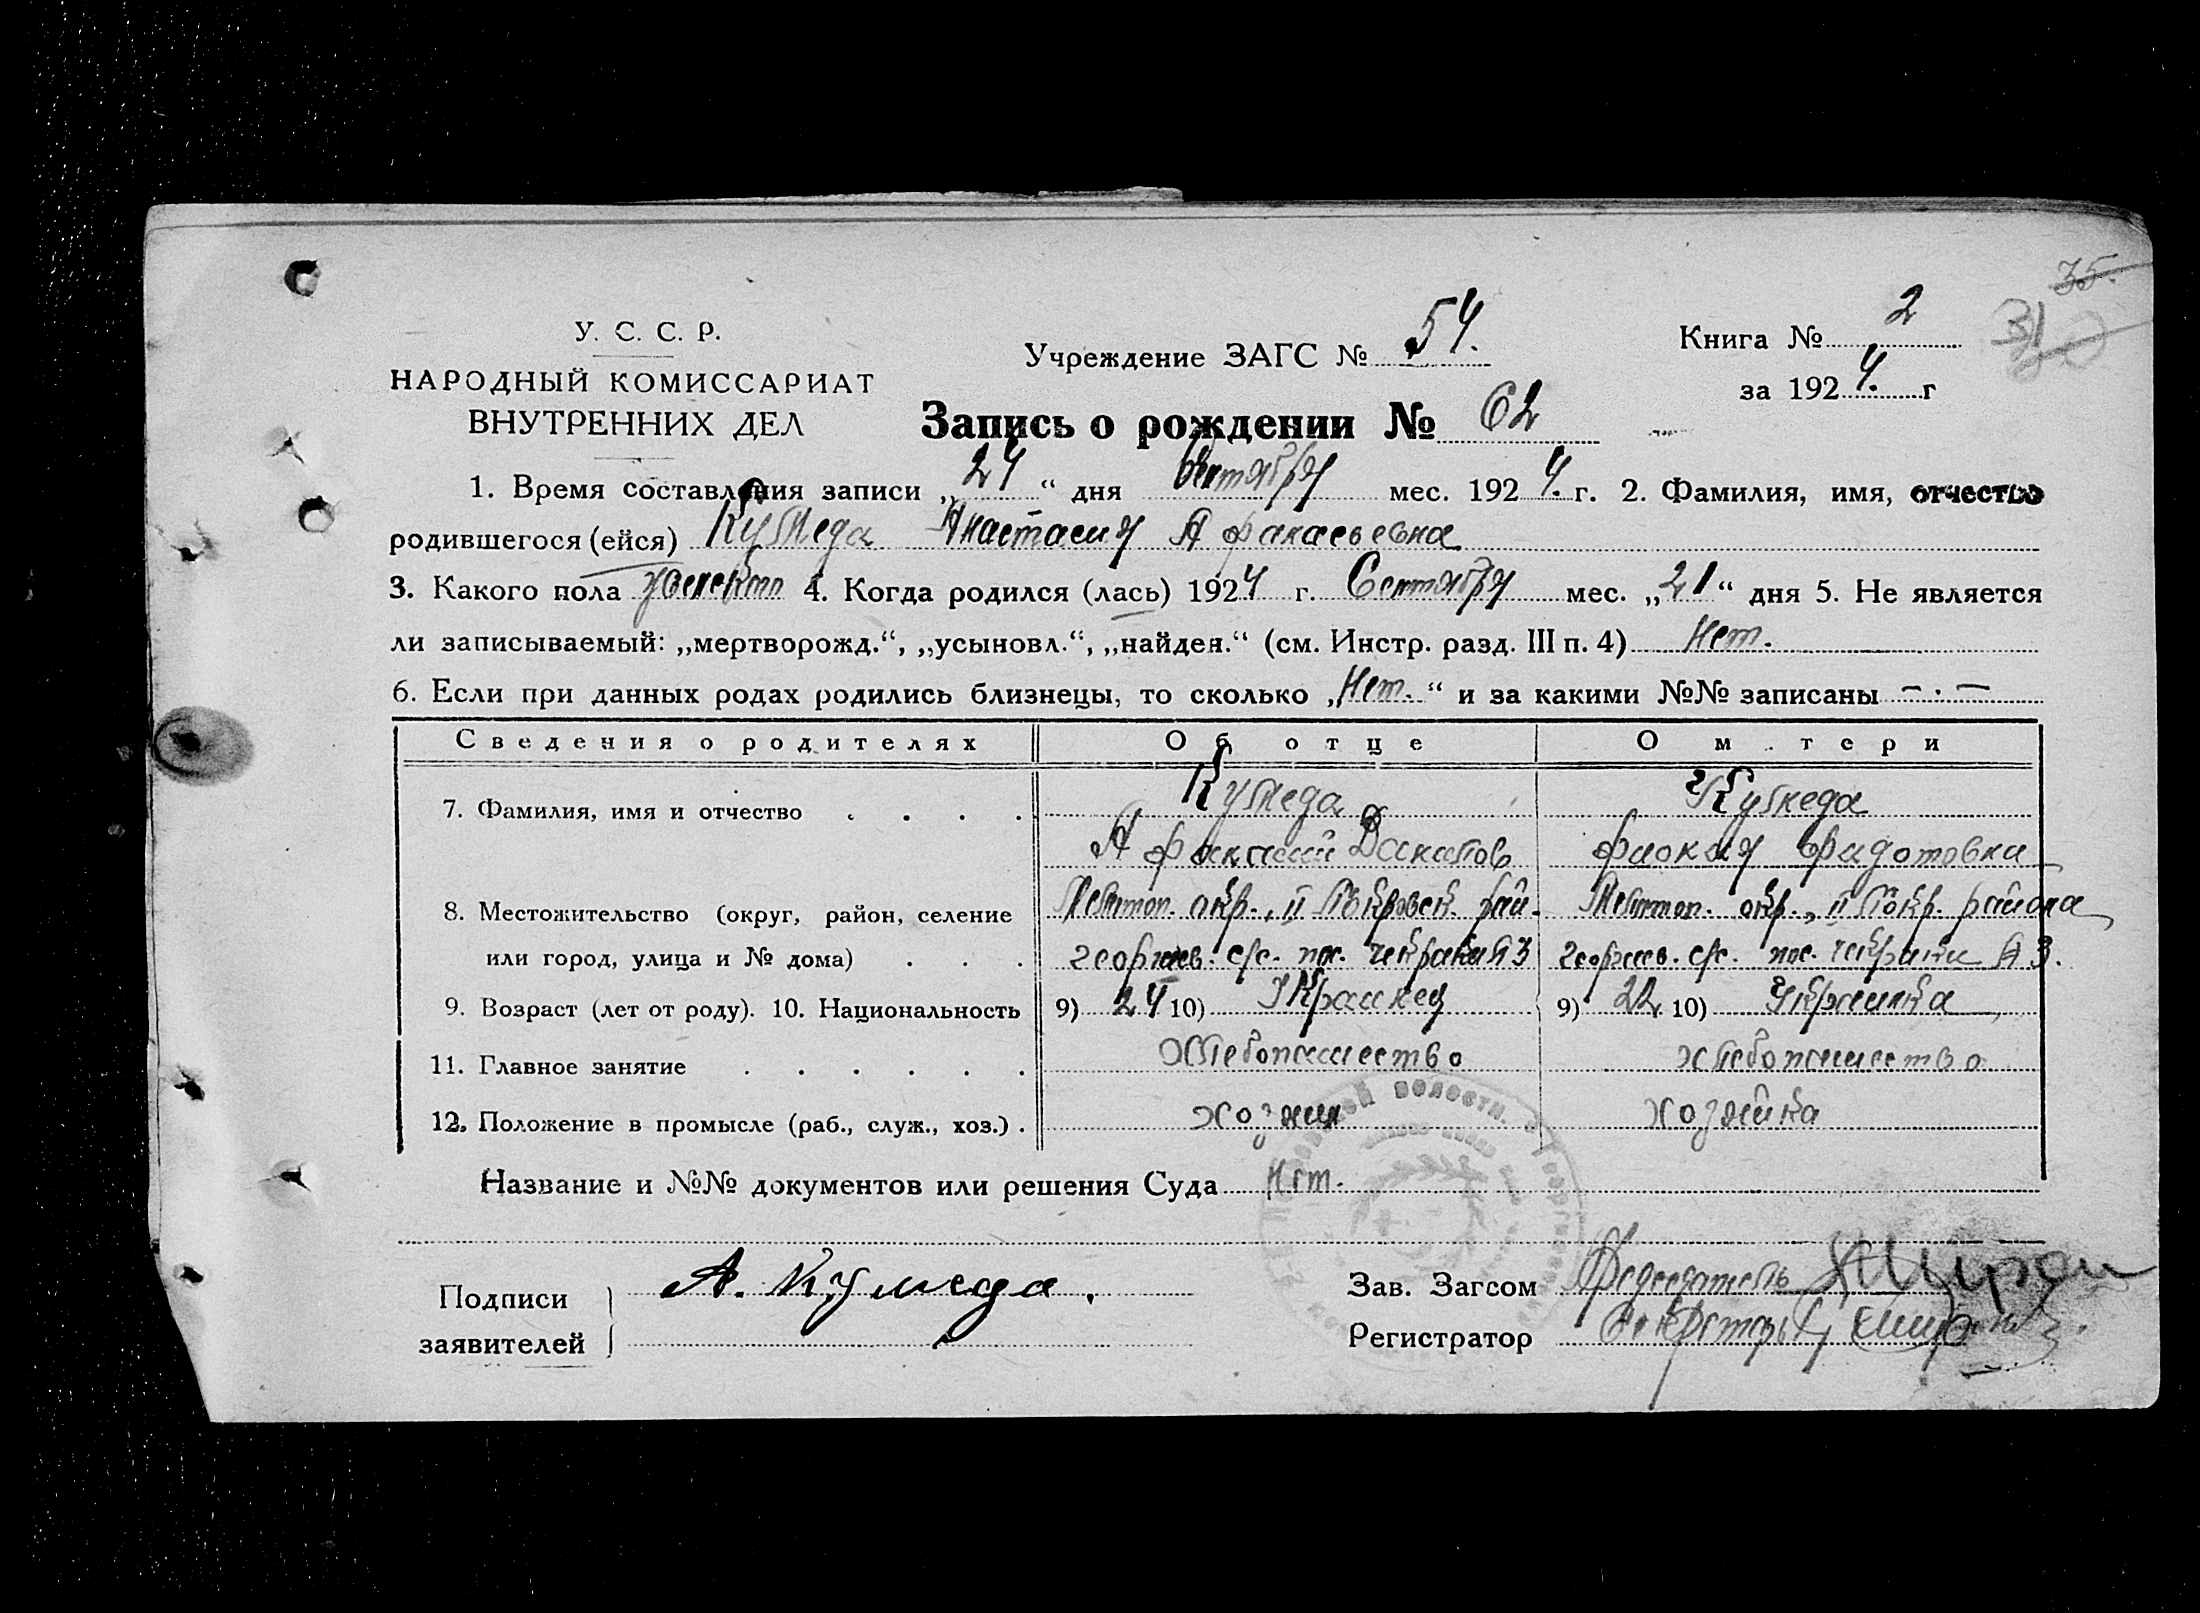 35.
31
У. С. С. Р.
НАРОДНЫЙ КОМИССАРИАТ
ВНУТРЕННИХ ДЕЛ
Учреждение ЗАГС № 54.
Книга № 2
за 1924. г
Запись о рождении № 62
1. Время составления записи „24“ дня мес. 1924. г. 2. Фамилия, имя, отчество
родившегося (ейся) Анастасия Афанасьевна
3. Какого пола женскаго 4. Когда родился (лась) 1924 г. Сентября мес. „21“ дня 5. Не является
ли записываемый: „мертворожд.“, „усыновл.“, „найден.“ (см. Инстр. разд. III п. 4) Нет.
6. Если при данных родах родились близнецы, то сколько „Нет.“ и за какими №№ записаны — . —
Сведения о родителях Об отце О м тери
7. Фамилия, имя и отчество . . . .
Афанасий Фидотовна
8. Местожительство (округ, район, селение Мелитоп. окр., II Покровск. рай. Мелитоп. окр., II Покр. района
или город, улица и № дома) . . . георгиев. с/с. пос. георгиев. с/с. пос.
9. Возраст (лет от роду). 10. Национальность 9) 24 10) Украинец 9) 22 10) Украинка
11. Главное занятие . . . . . . Хлебопашество хлебопашество
12. Положение в промысле (раб., служ., хоз.) . хозяин хозяйка
Название и №№ документов или решения Суда Нет.
Подписи
заявителей
А. Кумеда.
Зав. Загсом Председатель
Регистратор Секретарь